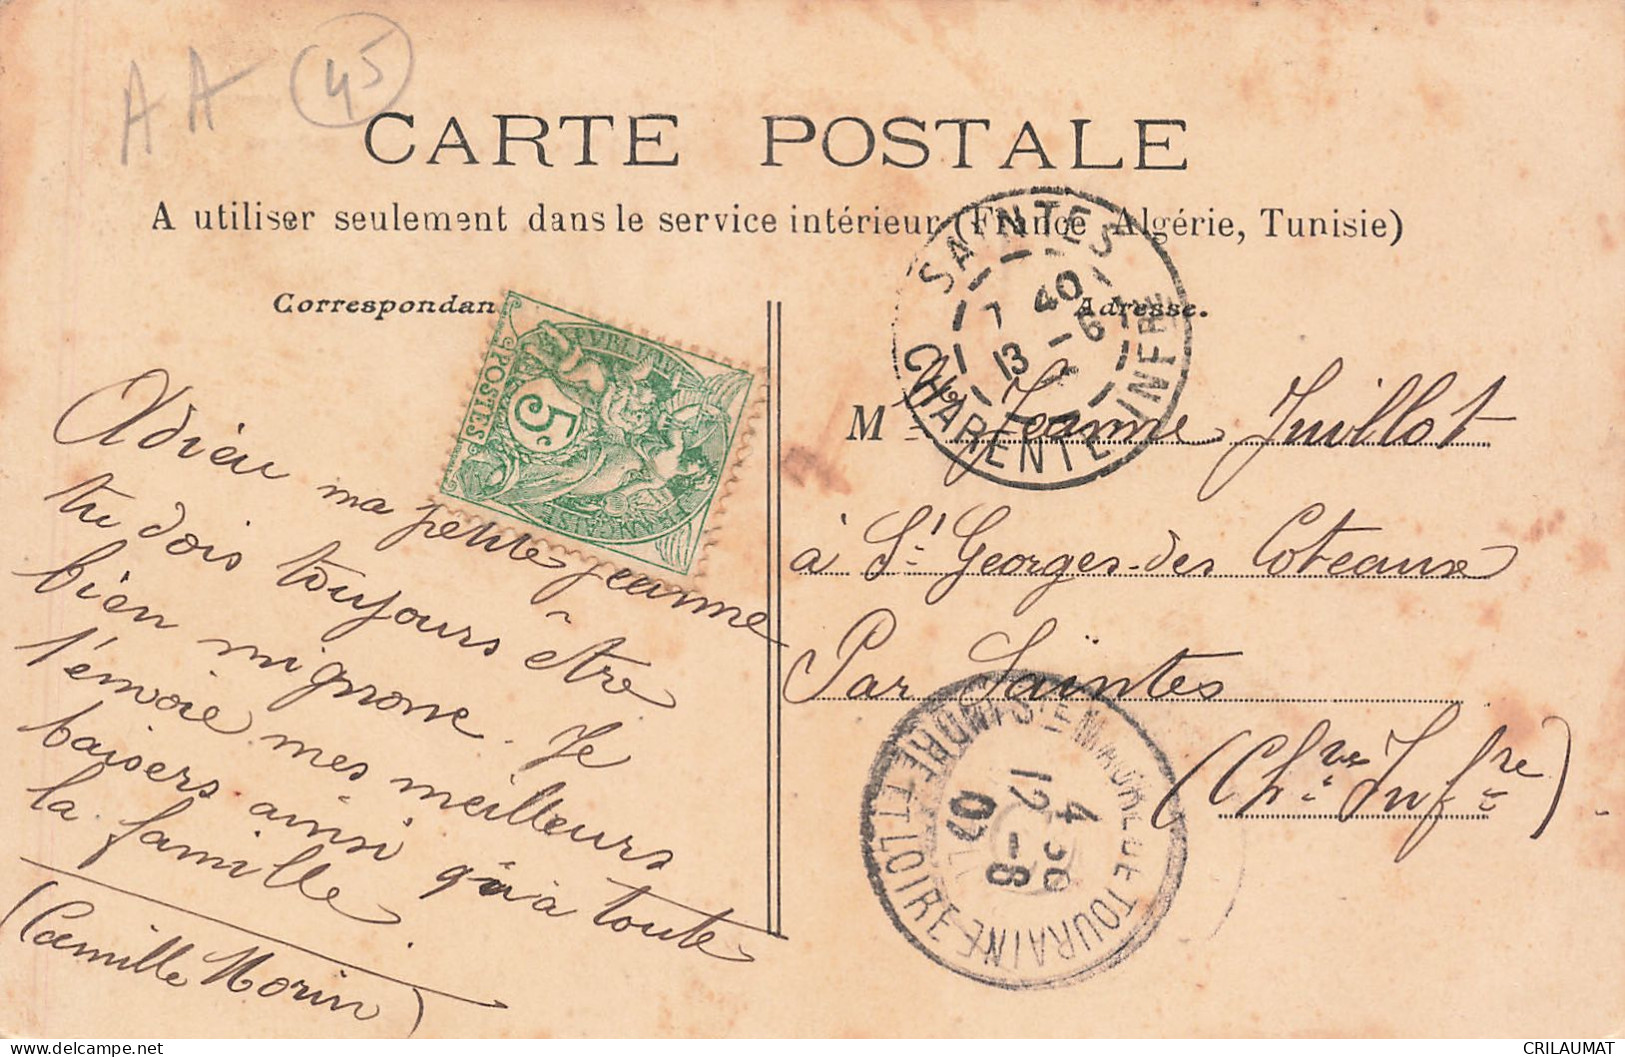 AA 45
CARTE POSTALE
A utiliser seulement dans le service intérieur (France Algérie, Tunisie)
Correspondan
Adresse.
REPUBLIQUE
FRANÇAISE
POSTES
5c
SAINTES
7 40
13 -6
CHARENTE-INFRE
Adieu ma petite Jeanne
tu dois toujours être
bien mignone. Je
t'envoie mes meilleurs
baisers ainsi qu'a toute
la famille
(Camille Morin)
M Jeanne Juillot
à St Georges-des Coteaux
Par Saintes
(Chre Infre)
STE MAURE DE TOURAINE
INDRE ET LOIRE
12 -6
07
CRILAUMAT